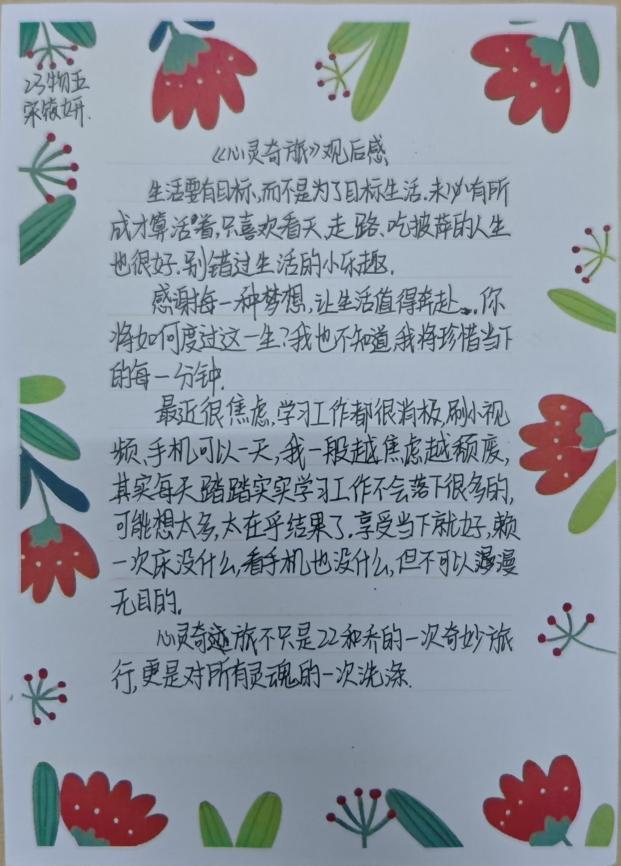 23物五
宋筱妍.
《心灵奇旅》观后感
生活要有目标,而不是为了目标生活,未必有所
成才算活着,只喜欢看天、走路、吃披萨的人生
也很好.别错过生活的小乐趣.
感谢每一种梦想,让生活值得奔赴.你
将如何度过这一生?我也不知道,我将珍惜当下
的每一分钟.
最近很焦虑,学习工作都很消极,刷小视
频、手机可以一天,我一般越焦虑越颓废,
其实每天踏踏实实学习工作不会落下很多的,
可能想太多,太在乎结果了,享受当下就好,赖
一次床没什么,看手机也没什么,但不可以漫
无目的.
心灵奇旅不只是22和乔的一次奇妙旅
行,更是对所有灵魂的一次洗涤.